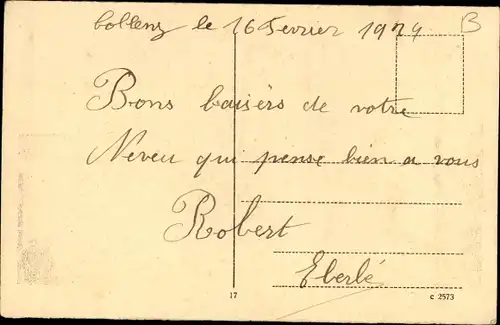 Coblenz le 16 Fevrier 1924
B
Bons baisers de votre
Neveu qui pense bien a vous
Robert
Eberlé
17
c 2573